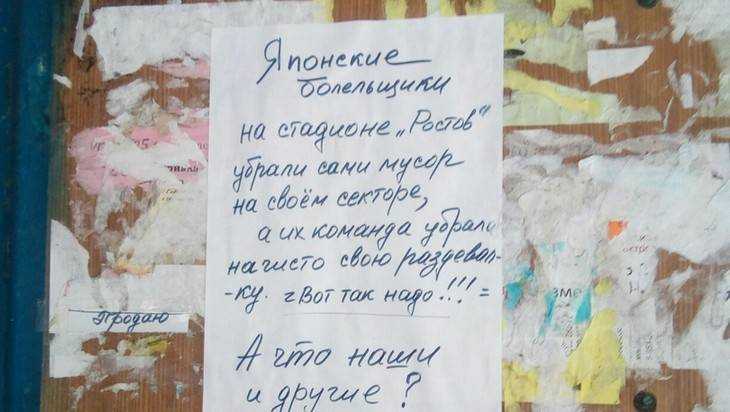 Японские
болельщики
на стадионе „Ростов“
убрали сами мусор
на своём секторе,
а их команда убрала
начисто свою раздевал-
-ку. =Вот так надо!!! =
А что наши
и другие?
Продаю